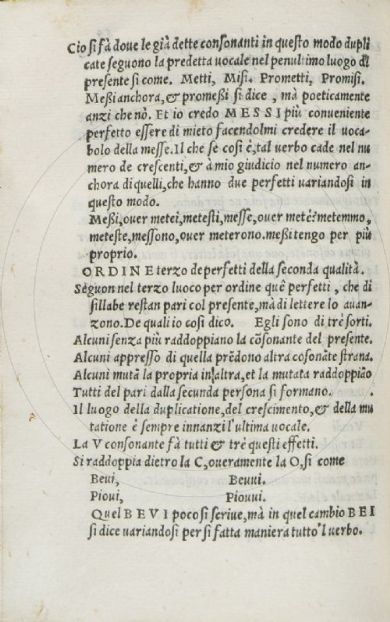 Cio si fà doue le già dette consonanti in questo modo dupli
cate seguono la predetta vocale nel penultimo luogo di
presente si come. Metti, Misi. Prometti, Promisi.
Meßi anchora, & promeßi si dice, mà poeticamente
anzi che nò. Et io credo MESSI più conueniente
perfetto essere di mieto facendolmi credere il voca-
bolo della messe. Il che se cosi è, tal verbo cade nel nu
mero de crescenti, & à mio giudicio nel numero an-
chora di quelli, che hanno due perfetti variandosi in
questo modo.
Meßi, ouer metei, metesti, messe, ouer meteè metemmo,
meteste, messono, ouer meterono. meßi tengo per più
proprio.
ORDINE terzo de perfetti della seconda qualità.
Seguon nel terzo luoco per ordine quē perfetti, che di
sillabe restan pari col presente, mà di lettere lo auan-
zono. De quali io cosi dico. Egli sono di trè sorti.
Alcuni senza più raddoppiano la cōsonante del presente.
Alcuni appresso di quella prēdono altra cosonāte strana.
Alcuni mutā la propria in altra, et la mutata raddoppião
Tutti del pari dalla secunda persona si formano.
Il luogo della duplicatione, del crescimento, & della mu
tatione è sempre innanzi l'ultima vocale.
La V consonante fà tutti & trè questi effetti.
Si raddoppia dietro la C, oueramente la O, si come
Beui, Beuui.
Pioui, Piouui.
Quel BEVI poco si scriue, mà in quel cambio BEI
si dice variandosi per si fatta maniera tutto'l verbo.